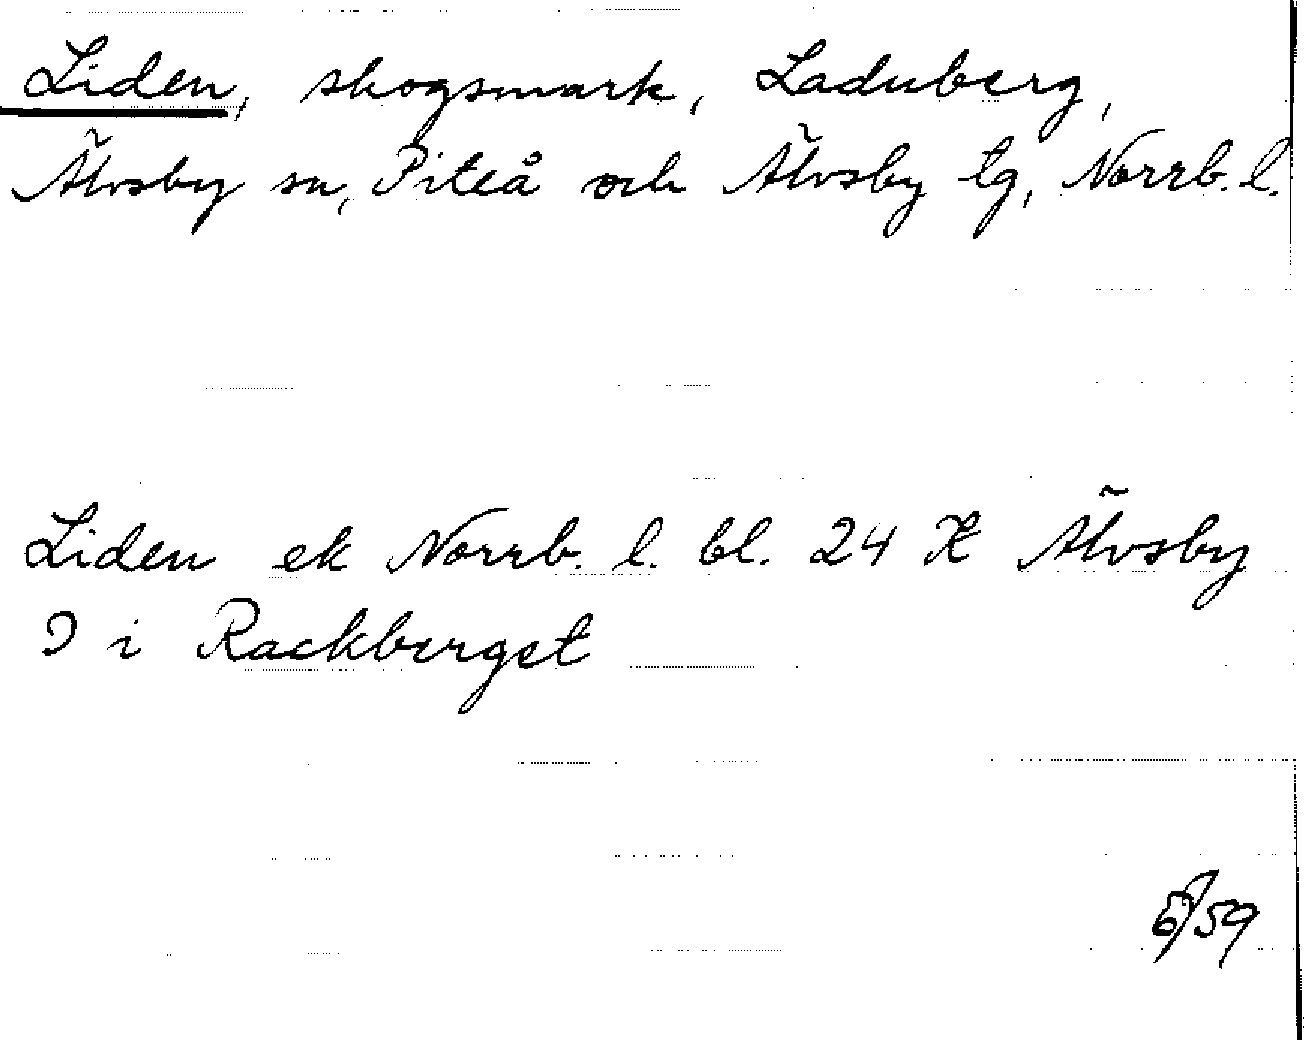 Liden, skogsmark, Laduberg,
Älvsby sn, Piteå och Älvsby tg, Norrb. l.
Liden ek Norrb. l. bl. 24 K Älvsby
i Rackberget
/59